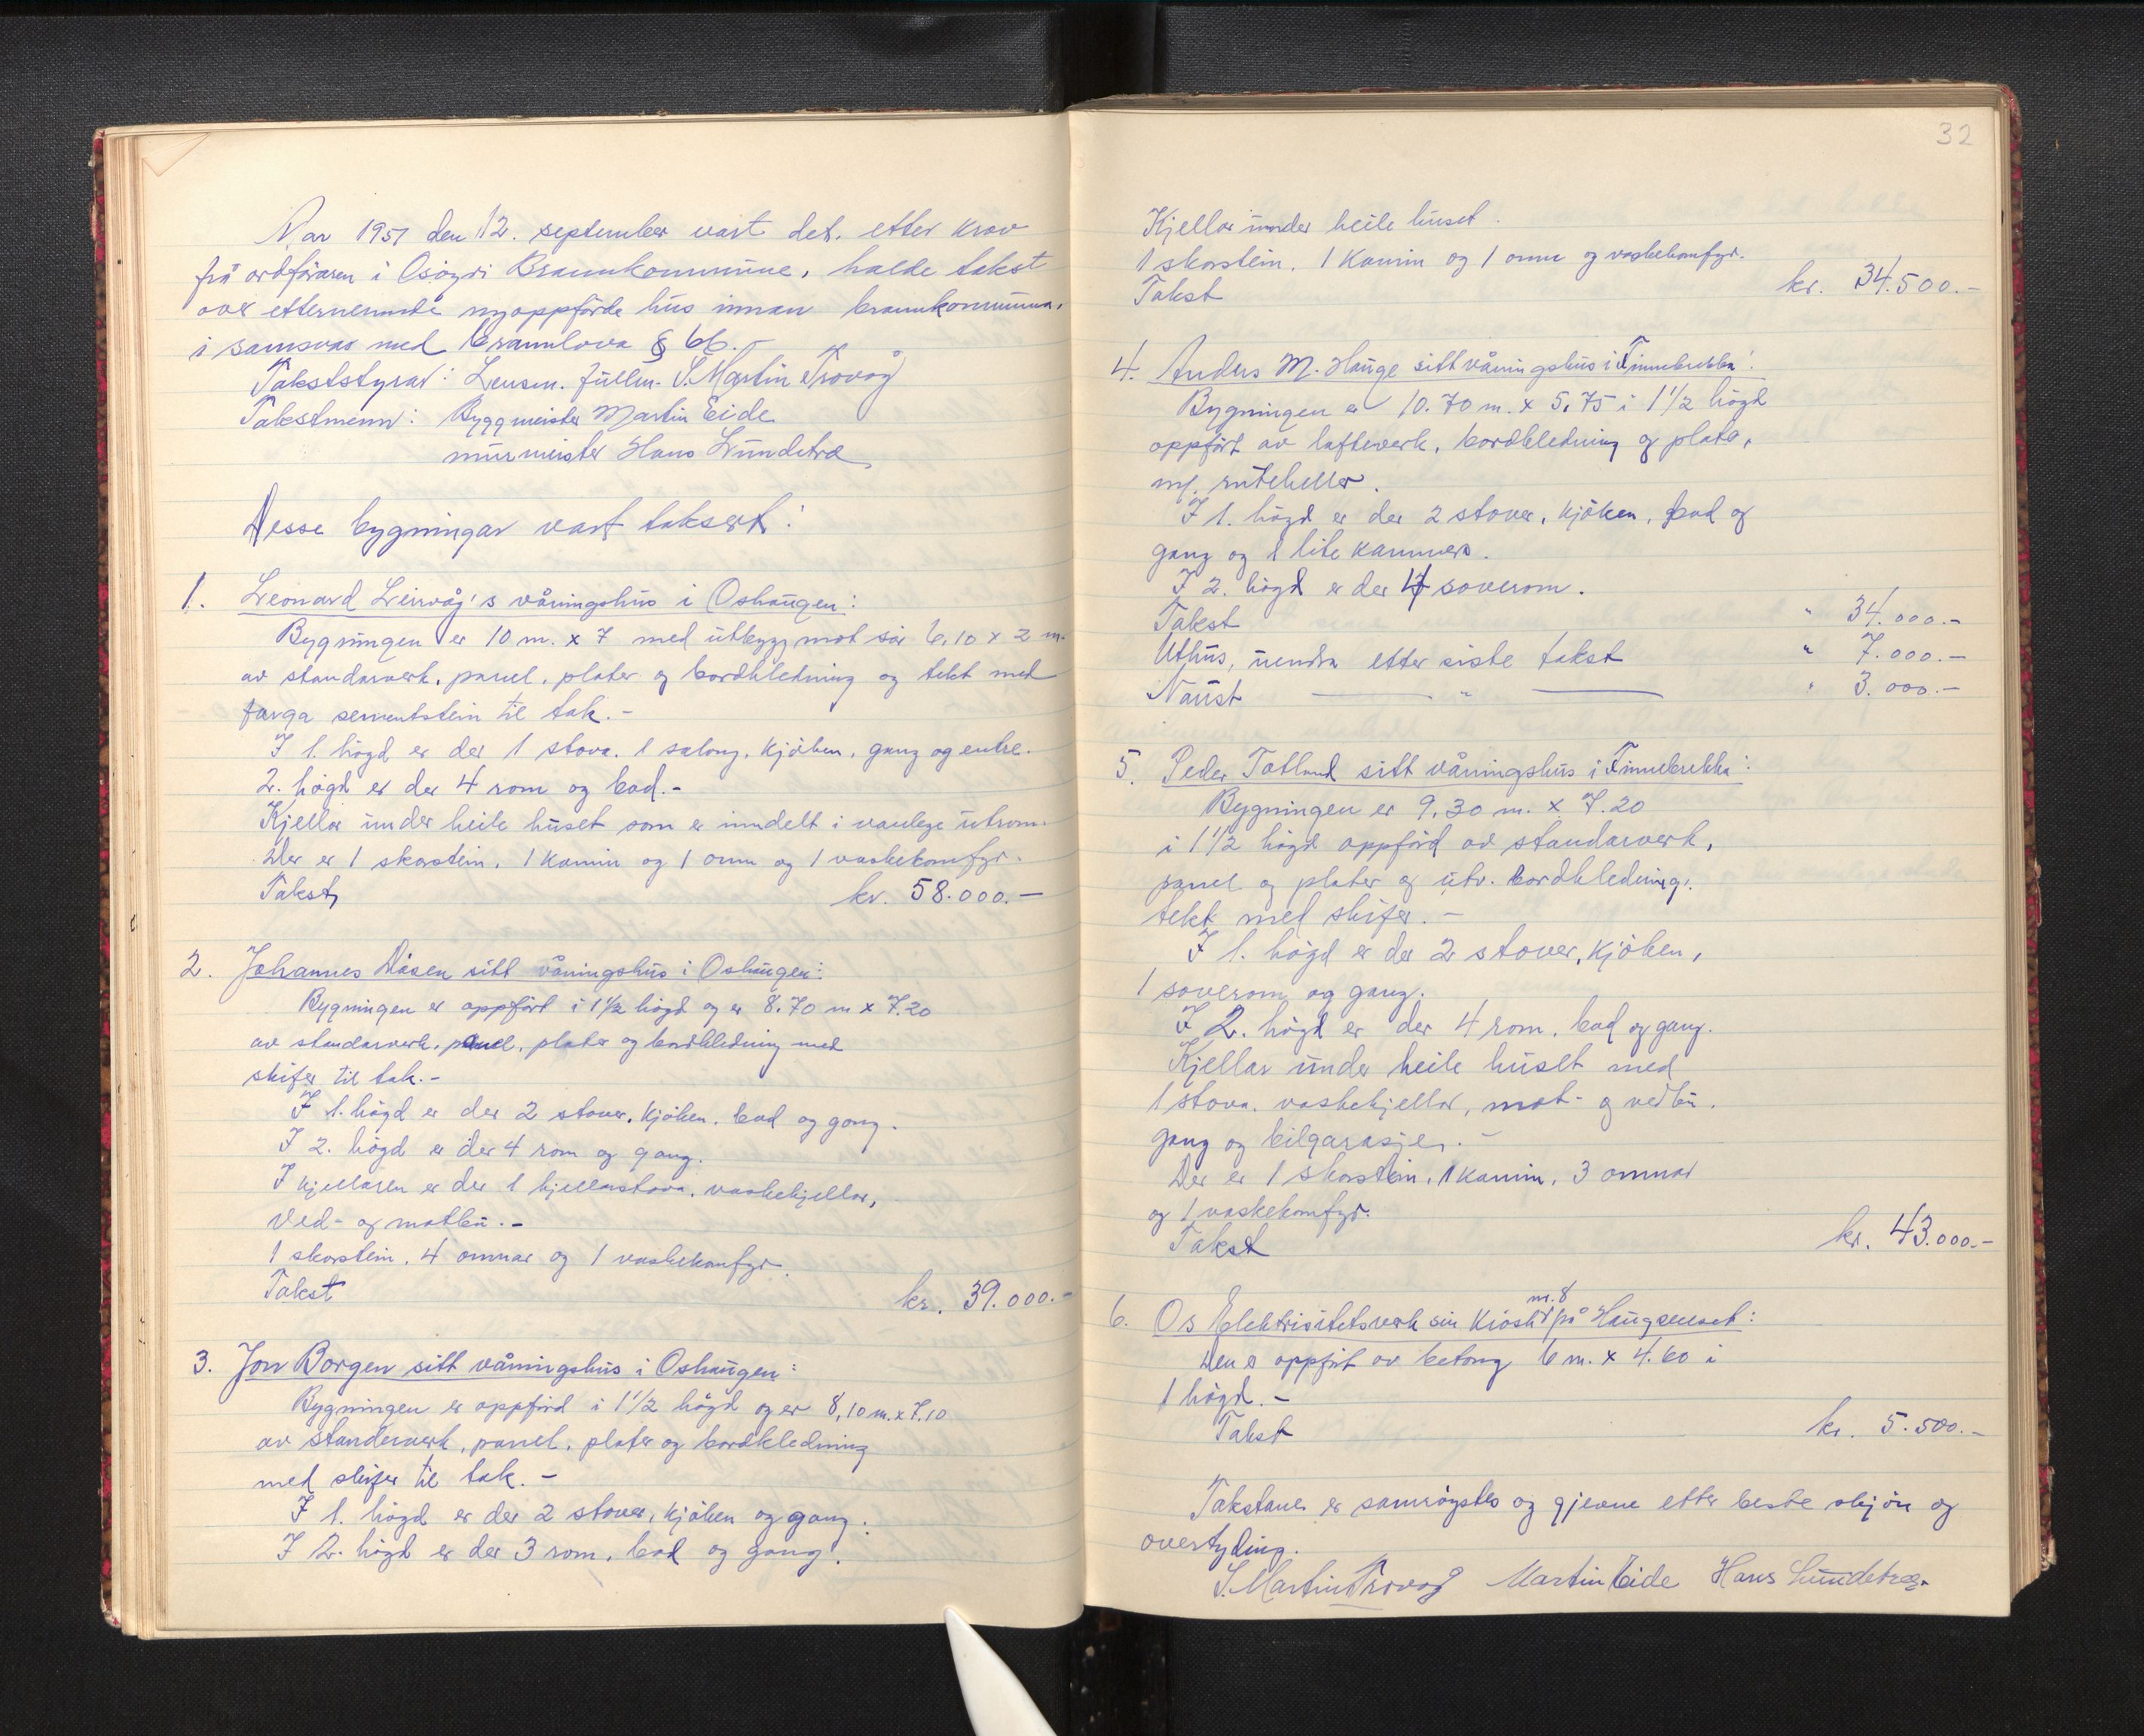 Aar 1951 den 12. september vart det, etter krav
frå ordføraren i Osøyri Brannkommune, halde takst
over etternemnde nyoppførde hus innan brannkommuna,
i samsvar med brannlova § 66.-
Takststyrar: Lensm. fullm. S. Martin Trovåg
Takstmenn: Byggmeister Martin Eide
murmeister Hans Lundetræ
Desse bygningar vart taksert:
1. Leonard Leirvåg's våningshus i Oshaugen:
Bygningen er 10 m. x 7 med utbygg mot sør 6,10 x 2 m.
av standarverk, panel, plater og bordkledning og tekt med
farga sementstein til tak.-
I 1. høgd er der 1 stova. 1 salong, kjøken, gang og entre.
2. høgd er der 4 rom og bad.-
Kjellar under heile huset som er inndelt i vanlege utrom.
Der er 1 skorstein, 1 kamin og 1 omn og 1 vaskekomfyr.
Takst kr. 58.000.-
2. Johannes Døsen sitt våningshus i Oshaugen:
Bygningen er oppført i 1 1/2 høgd og er 8.70 m x 7.20
av standarverk, panel, plater og bordkledning med
skifer til tak.-
I 1. høgd er der 2 stover, kjøken, bad og gang.
I 2. høgd er der 4 rom og gang.
I kjellaren er der 1 kjellarstova, vaskekjellar,
Ved- og matbu.-
1 skorstein, 4 omnar og 1 vaskekomfyr.
Takst kr. 39.000.-
3. Jon Borgen sitt våningshus i Oshaugen:
Bygningen er oppførd i 1 1/2 høgd og er 8,10 m. x 7.10
av standerverk, panel, plater og bordkledning
med skifer til tak.-
I 1. høgd er der 2 stover, kjøken og gang.
I 2. høgd er der 3 rom, bad og gang.
32
Kjellar under heile huset.
1 skorstein, 1 Kamin og 1 omn og vaskekomfyr.
Takst kr. 34.500.-
4. Anders M. Hauge sitt våningshus i Finnebrekka:
Bygningen er 10.70 m. x 5,75 i 1 1/2 høgd
oppført av lafteverk, bordkledning og plate,
m/ ruteheller.
I 1. høgd er der 2 stover, kjøken, bad og
gang og 1 lite kammers.
I 2. høgd er der 4 soverom.
Takst " 34.000.-
Uthus, uendra etter siste takst " 7.000.-
Naust — " — " 3.000.-
5. Peder Tøtland sitt våningshus i Finnebrekka:
Bygningen er 9.30 m. x 7.20
i 1 1/2 høgd oppførd av standarverk,
panel og plater og utv. bordkledning,
tekt med skifer.-
I 1. høgd er der 2 stover, kjøken,
1 soverom og gang.
I 2. høgd er der 4 rom, bad og gang.
Kjellar under heile huset med
1 stova, vaskekjellar, mat- og vedbu.
gang og bilgarasje.-
Der er 1 skorstein, 1 kamin, 3 omnar
og 1 vaskekomfyr.
Takst kr. 43.000.-
6. Os Elektrisitetsverk sin Kiosk nr. 8 på Haugseneset:
Den er oppført av betong 6 m. x 4.60 i
1 høgd.-
Takst kr. 5.500.-
Takstane er samrøystes og gjevne etter beste skjøn og
overtyding.
S. Martin Trovåg Martin Eide Hans Lundetræ.